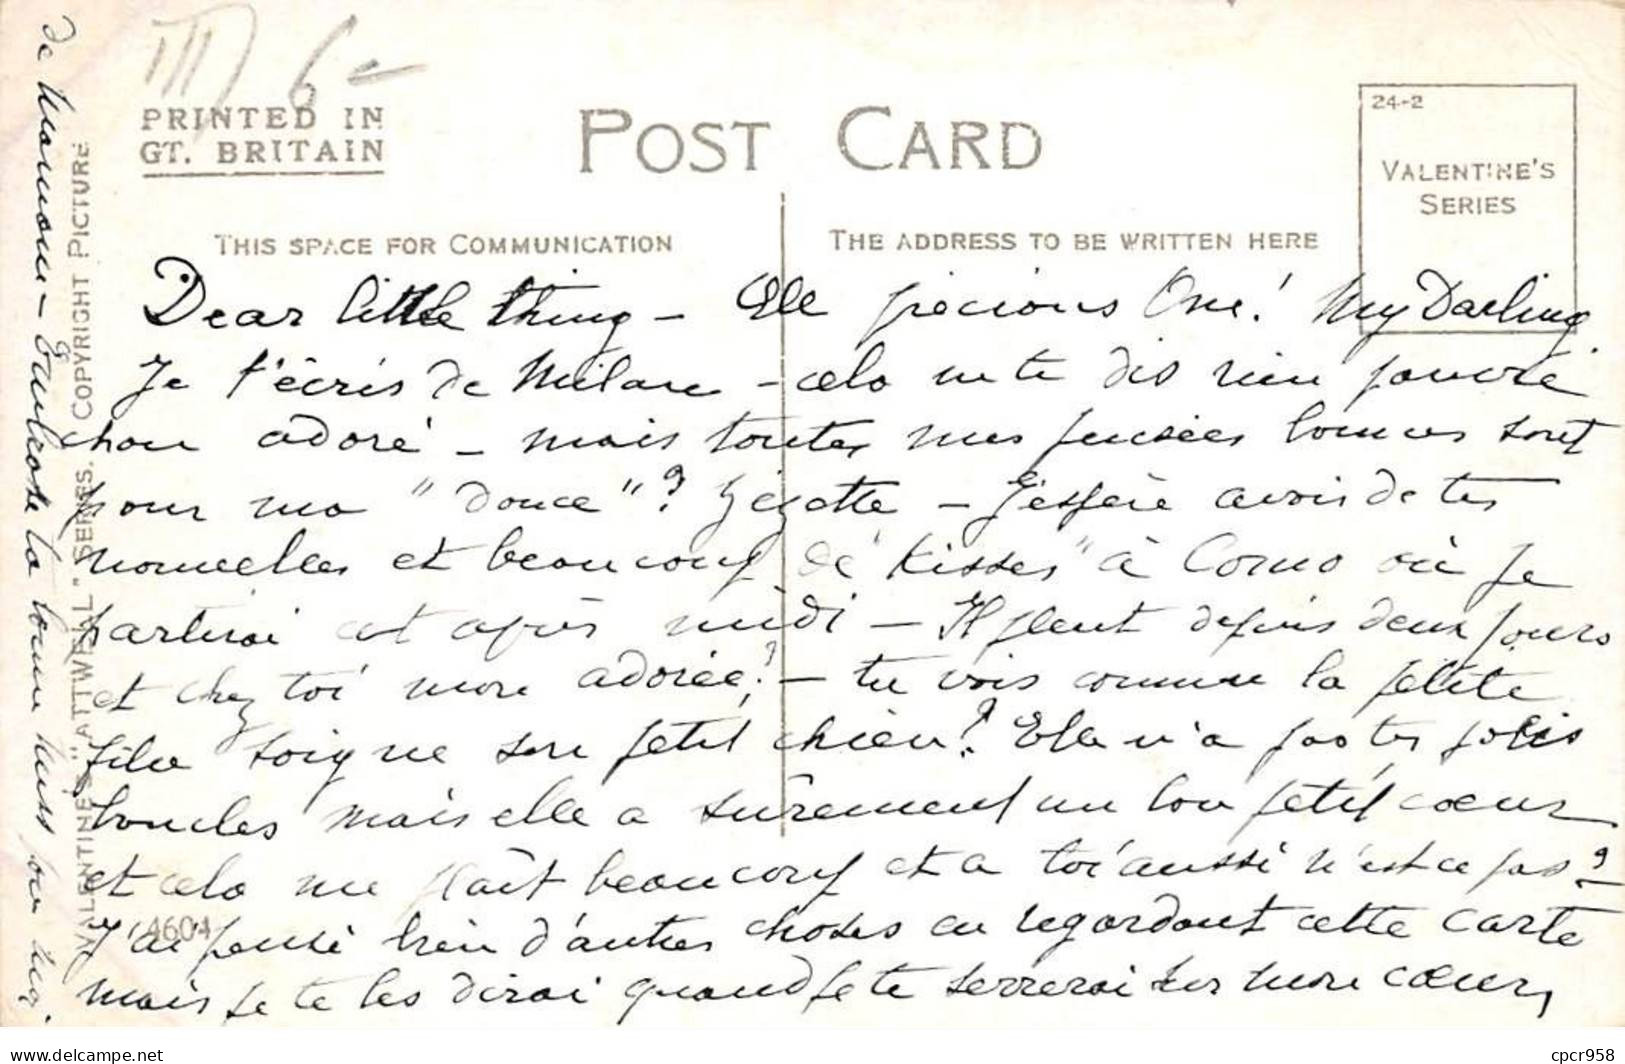 III 6-
PRINTED IN
GT. BRITAIN
POST CARD
24-2
VALENTINE'S
SERIES
THIS SPACE FOR COMMUNICATION
THE ADDRESS TO BE WRITTEN HERE
Dear little thing - precious One! My Darling
Je t'écris de Milan - cela ne te dis rien pauvre
chou adoré - mais toutes mes pensées bonnes sont
pour ma "douce"? Gégotte - J'espère avoir de tes
nouvelles et beaucoup de "Kisses" à Como où je
partirai cet après midi - Il pleut depuis deux jours
et chez toi mon adorée? - tu vois comme la petite
fille soigne son petit chien? Elle n'a pas tes jolies
boucles mais elle a sûrement un bon petit cœur
et cela me plaît beaucoup et a toi aussi n'est ce pas?
J'ai pensé bien d'autres choses en regardant cette carte
mais je te les dirai quand je te serrerai sur mon cœur,
de Maman - la bonne
VALENTINE'S "ATTWELL" SERIES. COPYRIGHT PICTURE
4604
delcampe.net
cpcr958